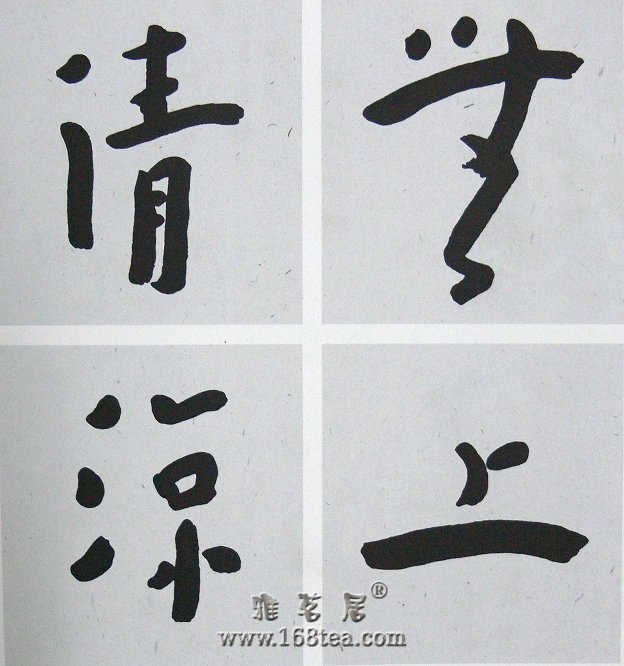 無上
清涼
雅茗居®
www.168tea.com